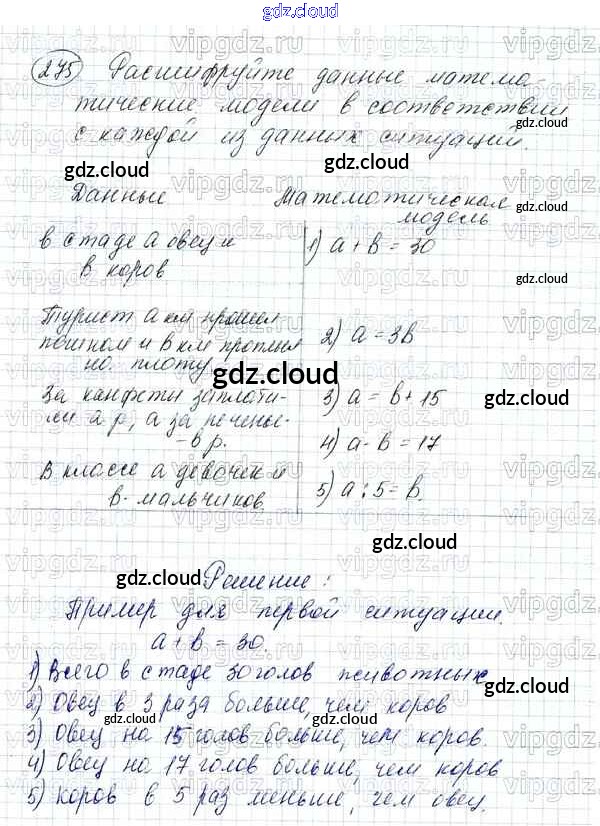 gdz.cloud
275 Расшифруйте данные матема-
тические модели в соответствии
с каждой из данных ситуаций.
gdz.cloud
gdz.cloud
gdz.cloud
Данные Математическая
модель
gdz.cloud
в стаде а овец и
в коров
1) а + в = 30
gdz.cloud
Турист а км прошел
пешком и в км проплыл
на плоту
2) а = 3в
gdz.cloud
За конфеты заплати-
ли а р, а за печенье-
- в р.
3) а = в + 15
gdz.cloud
4) а - в = 17
В классе а девочек и
в - мальчиков.
5) а : 5 = в.
gdz.cloud
gdz.cloud
Решение:
Пример для первой ситуации.
а + в = 30.
1) Всего в стаде 30 голов животных
gdz.cloud
2) Овец в 3 раза больше, чем коров
gdz.cloud
gdz.cloud
gdz.cloud
3) Овец на 15 голов больше, чем коров.
4) Овец на 17 голов больше, чем коров
5) коров в 5 раз меньше, чем овец.